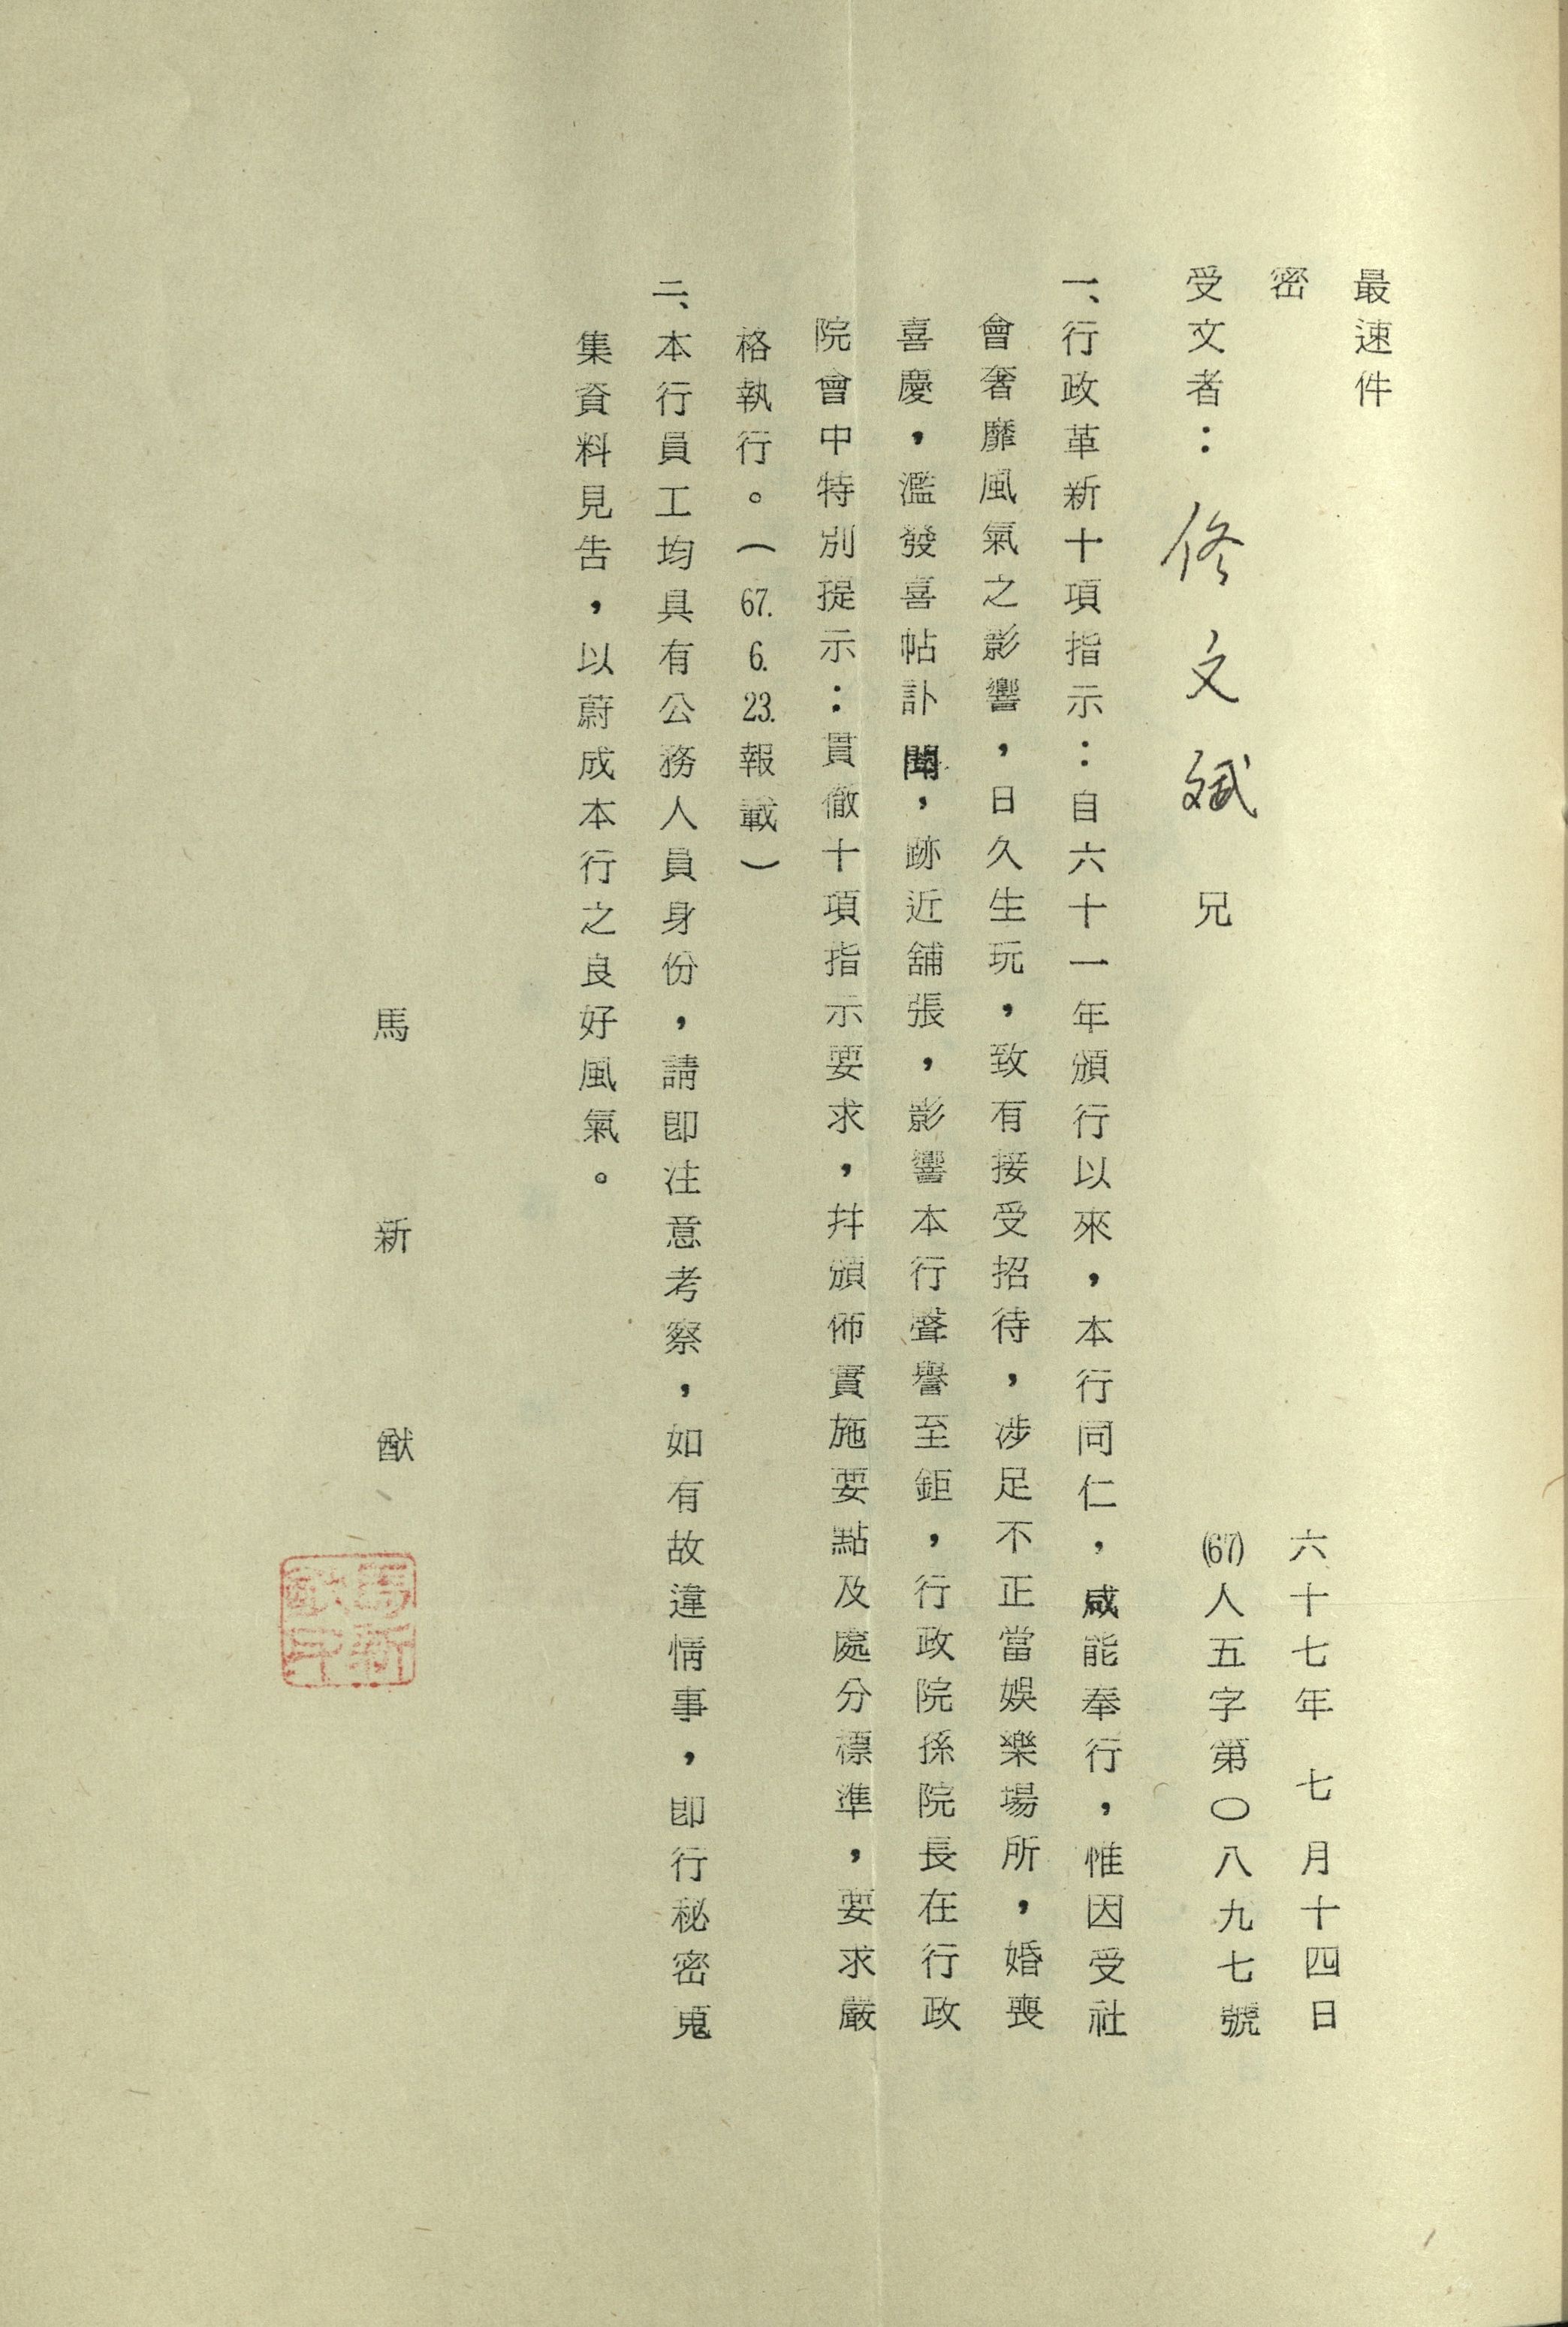 最速件
密
六十七年 七月十四日
受文者：佟文斌 兄
(67)人五字第〇八九七號
一、行政革新十項指示：自六十一年頒行以來，本行同仁，咸能奉行，惟因受社
會奢靡風氣之影響，日久生玩，致有接受招待，涉足不正當娛樂場所，婚喪
喜慶，濫發喜帖訃聞，跡近舖張，影響本行聲譽至鉅，行政院孫院長在行政
院會中特別提示：貫徹十項指示要求，幷頒佈實施要點及處分標準，要求嚴
格執行。（67.6.23.報載）
二、本行員工均具有公務人員身份，請卽注意考察，如有故違情事，卽行秘密蒐
集資料見告，以蔚成本行之良好風氣。
馬新猷